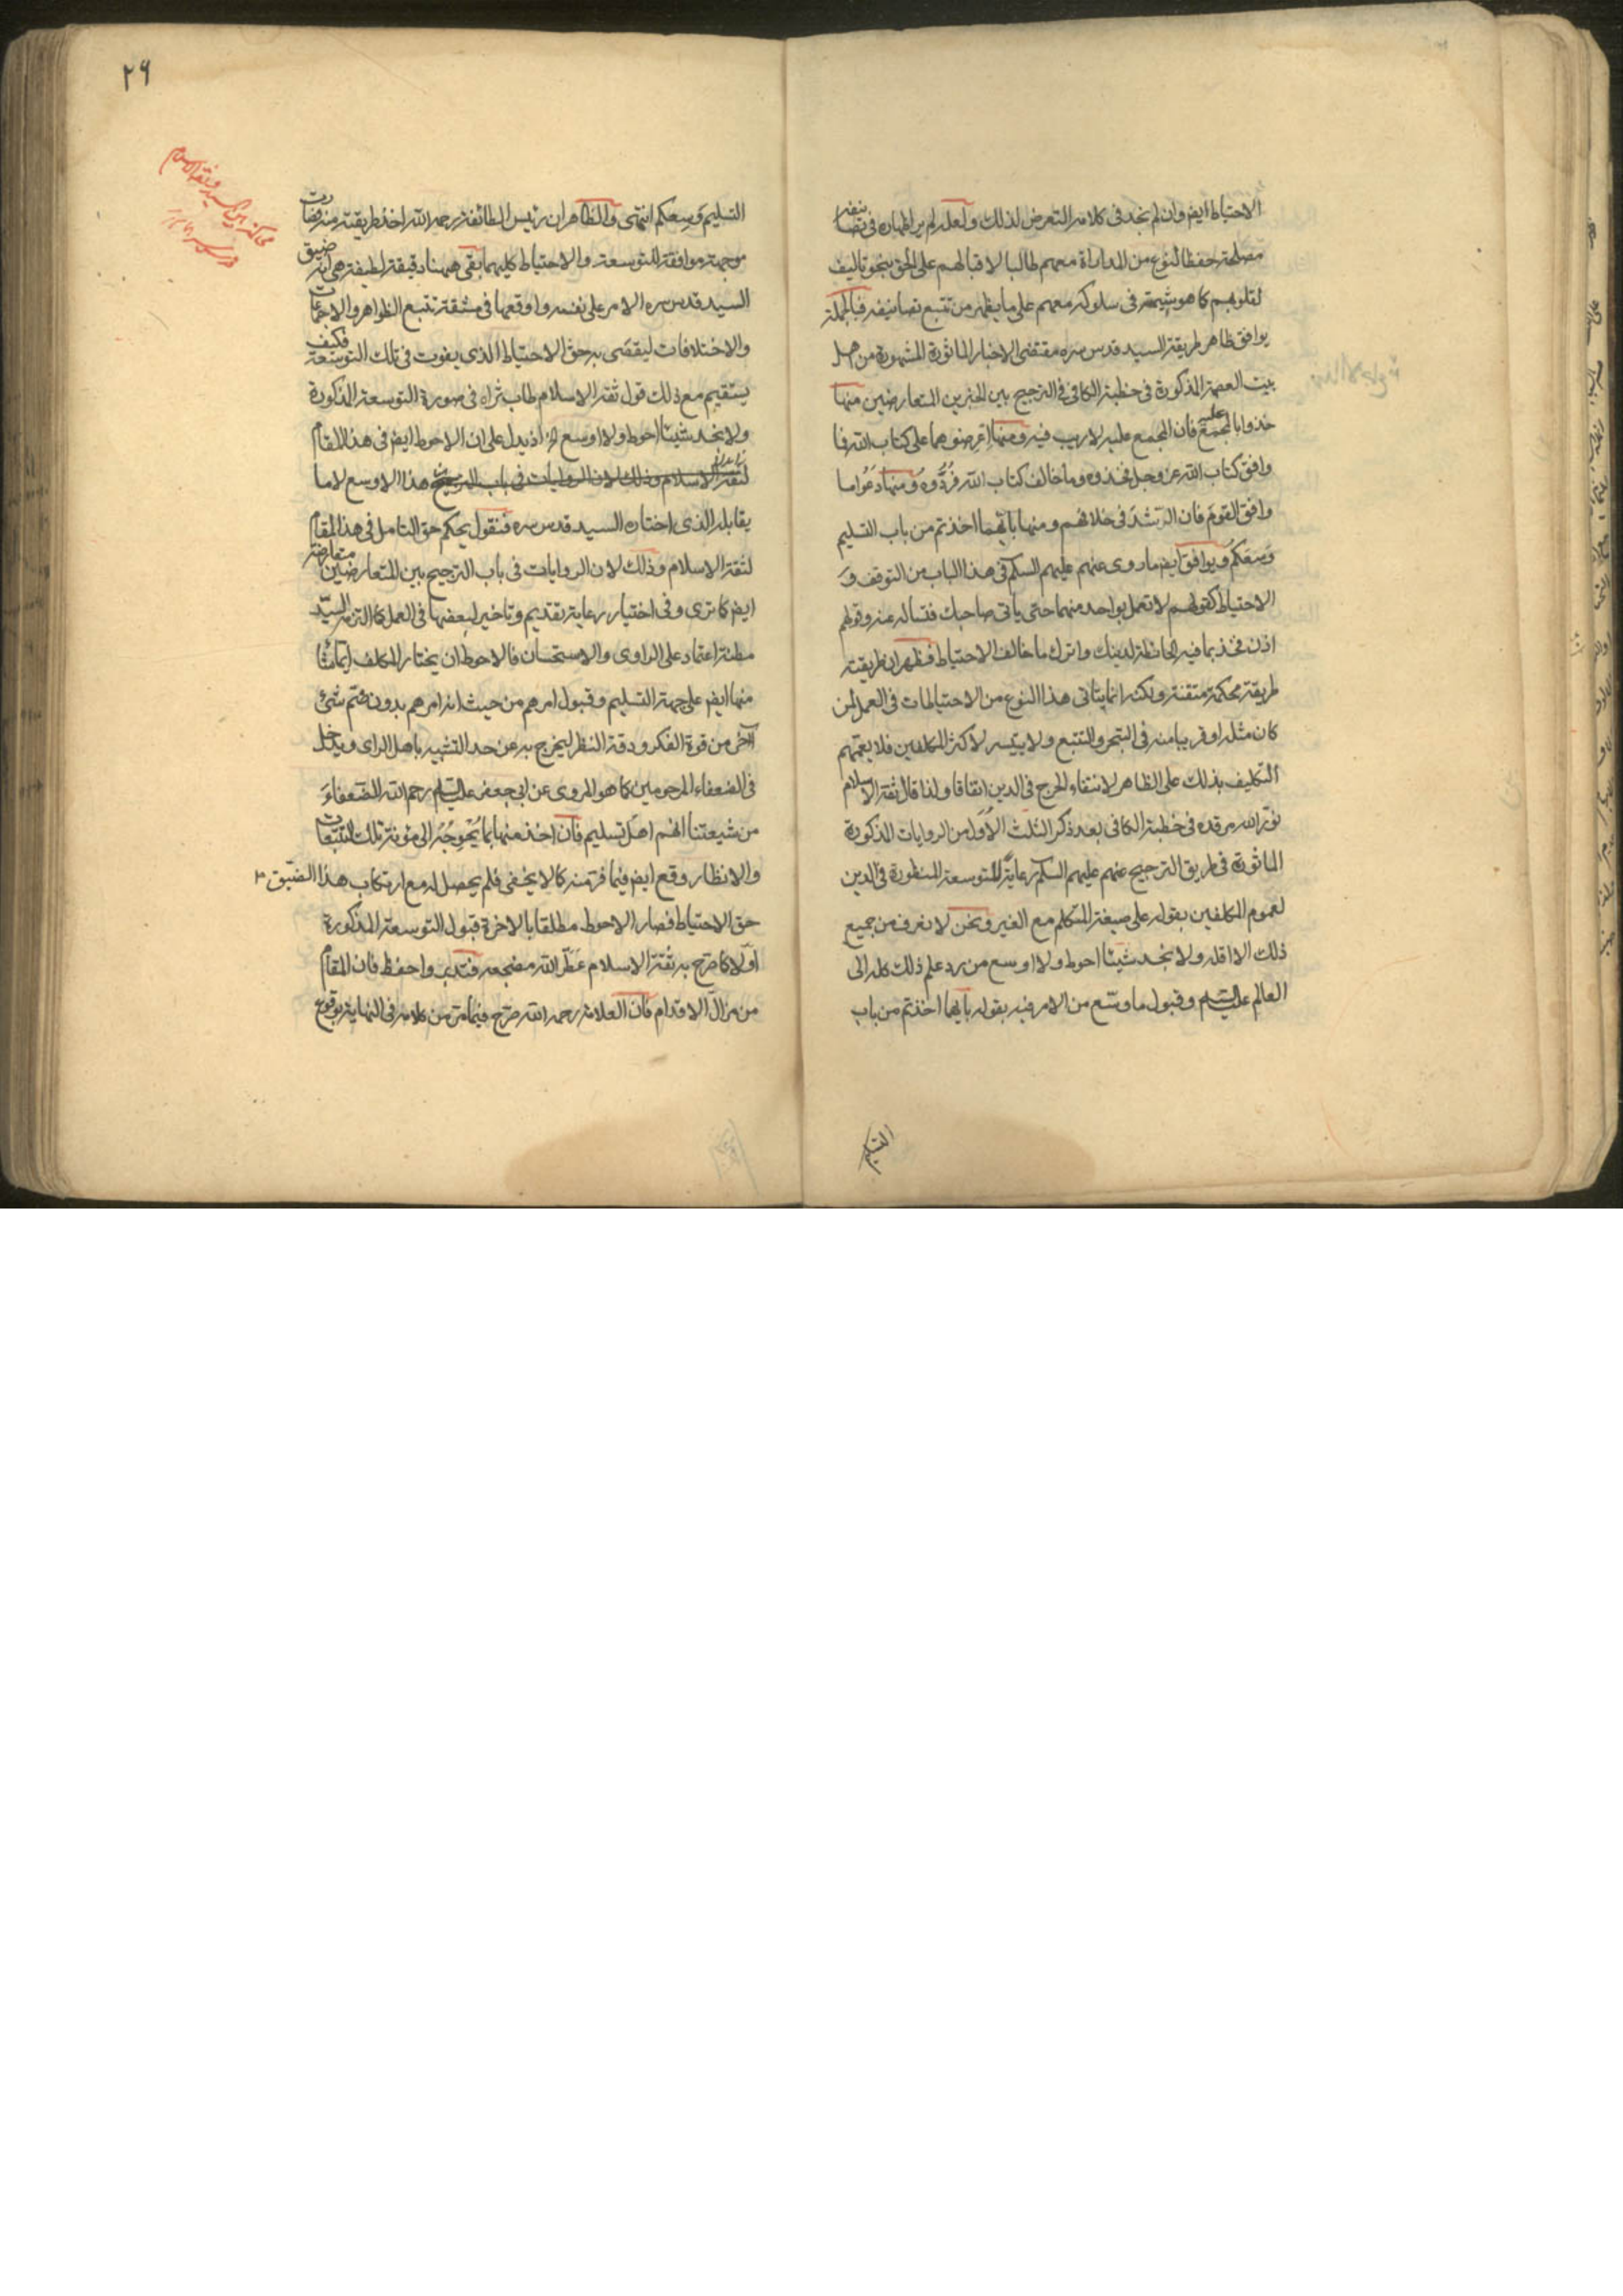 الاحتياط ايض وان لم نجد فى كلامه التعرض لذلك ولعله لم ير اظهاره فى تصانيفه
مصلحة حفظا لنوع من المداراة معهم طالبا لاقبالهم على الحق بنحو تاليف
لقلوبهم كما هو شيمته فى سلوكه معهم على ما يظهر من تتبع تصانيفه فبالجملة
يوافق ظاهر طريقة السيد قدس سره مقتضى الاخبار الماثورة المشهورة من اهل
بيت العصمة المذكورة فى خطبة الكافى فى الترجيح بين الخبرين المتعارضين منها
خذوا بالمجمع عليه فان المجمع عليه لا ريب فيه ومنها اعرضوهما على كتاب الله فما
وافق كتاب الله عز وجل فخذوه وما خالف كتاب الله فردُّوه ومنها دَعُوا ما
وافق القوم فان الرشد فى خلافهم ومنها بايّهما اخذتم من باب التسليم
وَسَعَكم ويوافق ايض ما روى عنهم عليهم السلم فى هذا الباب من التوقف وَ
الاحتياط كقولهم لا تعمل بواحد منهما حتى ياتى صاحبك فتساله عنه وقولهم
اذن فخذ بما فيه الحائطة لدينك واترك ما خالف الاحتياط فظهر ان طريقته
طريقة محكمة متقنة ولكنه انما يتاتى هذا النوع من الاحتياطات فى العمل لمن
كان مثله او قريبا منه فى التبحر والتتبع ولا يتيسر لاكثر المكلفين فلا يعمهم
التكليف بذلك على الظاهر لانتفاء الحرج فى الدين اتفاقا ولذا قال ثقة الاسلام
نوّر الله مرقده فى خطبة الكافى بعد ذكر الثلث الاُوَل من الروايات المذكورة
الماثورة فى طريق الترجيح عنهم عليهم السلم رعايةً للتوسعة المنظورة فى الدين
لعموم المكلفين بقوله على صيغة المتكلم مع الغير ونحن لا نعرف من جميع
ذلك الا اقله ولا نجد شيئا احوط ولا اوسع من رد علم ذلك كله الى
العالم عليه السلم وقبول ما وسّع من الامر فيه بقوله بايّهما اخذتم من باب
التسليم
٢٩
التسليم وَسِعكم انتهى والظاهر ان رئيس الطائفة رحمه الله اخذ طريقته منه فصارت
موجهة موافقة للتوسعة والاحتياط كليهما بقى ههنا دقيقة لطيفة هى انه ضيق
السيد قدس سره الامر على نفسه واوقعها فى مشقة تتبع الظواهر والاجماعات
والاختلافات ليقضى به حق الاحتياط الذى يفوت فى تلك التوسعة فكيف
يستقيم مع ذلك قول ثقة الاسلام طاب ثراه فى صورة التوسعة المذكورة
ولا نجد شيئا احوط ولا اوسع اه اذ يدل على ان الاحوط ايض فى هذا المقام
لثقة الاسلام وذلك لان الروايات فى باب الترجيح هذا الاوسع لا ما
يقابله الذى اختاره السيد قدس سره فنقول يحكم حق التامل فى هذا المقام
لثقة الاسلام وذلك لان الروايات فى باب الترجيح بين المتعارضين متعارضة
ايض كما ترى وفى اختيار رعاية تقديم وتاخير لبعضها فى العمل كما التزمه السيّد
مظنة اعتماد على الراى والاستحسان فالاحوط ان يختار المكلف ايّما شاء
منها ايض على جهة التسليم وقبول امرهم من حيث انه امرهم بدون ضمّ شئ
آخر من قوة الفكر ودقة النظر ليخرج به عن حد التشبه باهل الراى ويدخل
فى الضعفاء المرحومين كما هو المروى عن ابى جعفر عليه السلم رحم الله الضعفاءَ
من شيعتنا انهم اهل تسليم فان اخذ منها بما يُحْوِجُه الى مؤنة تلك التتبعات
والانظار وقع ايض فيما فرّ منه كما لا يخفى فلم يحصل له مع ارتكاب هذا الضيق
حق الاحتياط فصار الاحوط مطلقا بالاخرة قبول التوسعة المذكورة
اوّلا كما صرّح به ثقة الاسلام عَطّر الله مضجعه فتدبّر واحفظ فان المقام
من مزالّ الاقدام فان العلامة رحمه الله صرّح فيما مرّ من كلامه فى النهاية بوقوع